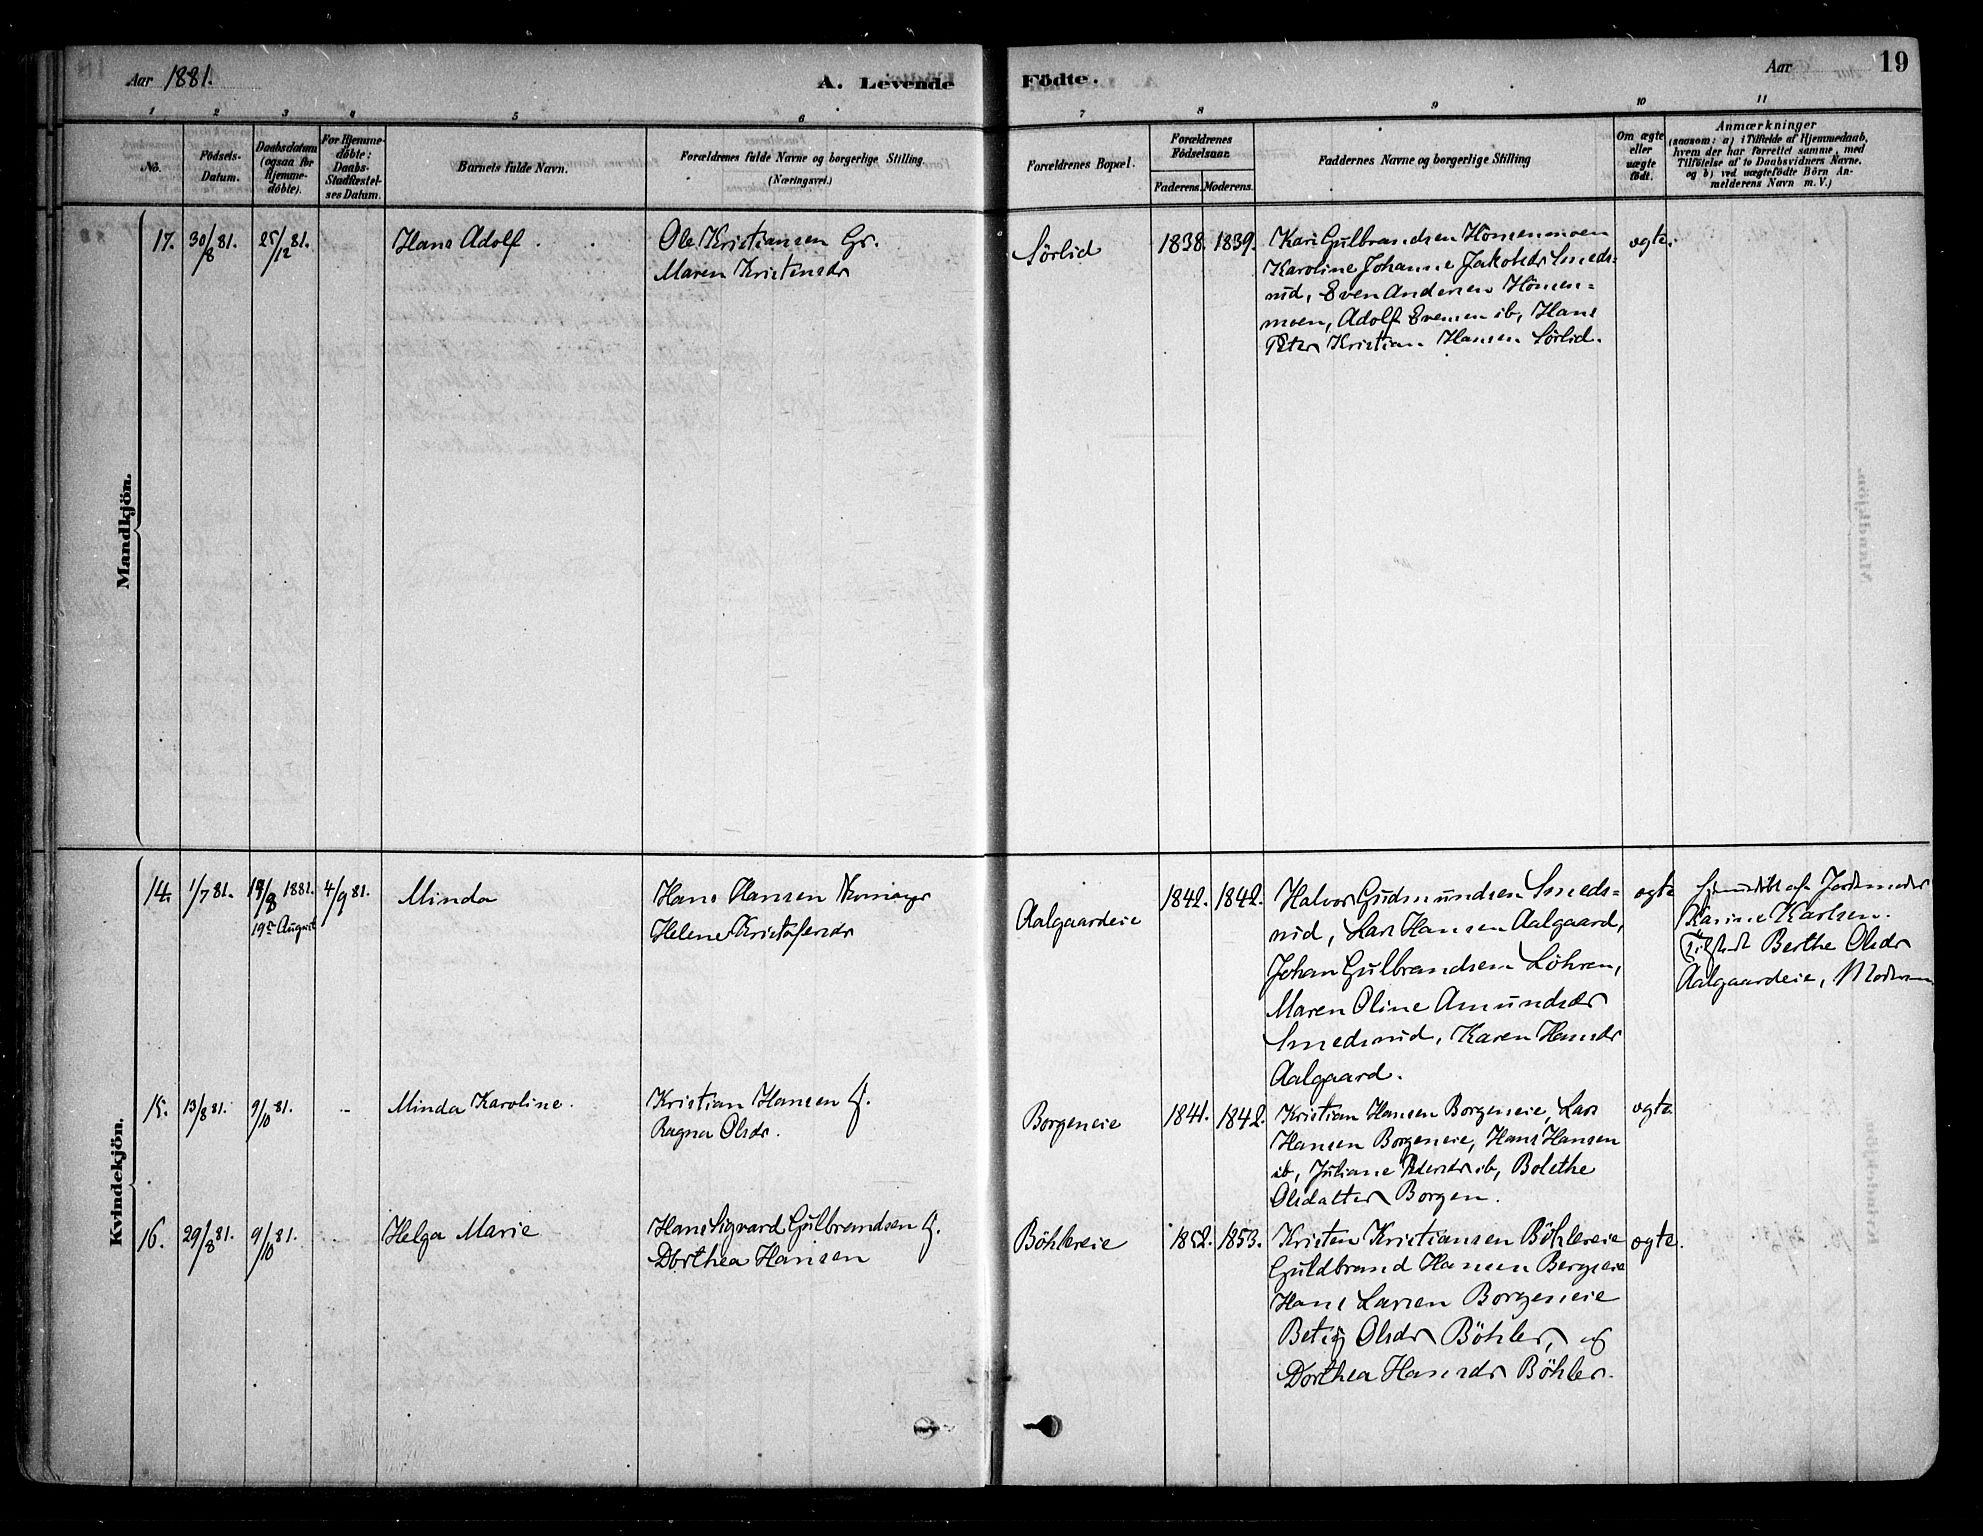 Aar 1881.
A. Levende Födte.
Aar
19
1 2 3 4 5 6 7 8 9 10 11
No.
Födsels-
Datum.
Daabsdatum
(ogsaa for
Hjemme-
döbte).
For Hjemme-
döbte:
Daabs-
Stadfæstel-
ses Datum.
Barnets fulde Navn.
Forældrenes fulde Navne og borgerlige Stilling
(Næringsvei.)
Forældrenes Bopæl.
Forældrenes
Födselsaar.
Faderens. Moderens.
Faddernes Navne og borgerlige Stilling
Om ægte
eller
uægte
födt.
Anmærkninger
(saasom: a) i Tilfælde af Hjemmedaab,
hvem der har forrettet samme, med
Tilföielse af to Daabsvidners Navne.
og b) ved uægtefödte Börn An-
melderens Navn m. V.)
Mandkjön.
17. 30/8 81. 25/12 81.
Hans Adolf
Ole Kristiansen Gr.
Maren Kristensdr
Sörlid
1838 1839.
Kari Gulbrandsen Homenmoen
Karoline Johanne Jakobsdr Smeds=
rud, Even Andersen Homen=
moen, Adolf Evensen ib, Hans
Peter Kristian Hansen Sörlid.
ægte.
Kvindekjön.
14. 1/7 81. 19/8 1881. 4/9 81.
19de August
Minda
Hans Hansen
Helene Kristofersdr
Aalgaardeie
1842. 1842.
Halvor Gudmundsen Smeds=
rud, Lars Hansen Aalgaard,
Johan Gulbrandsen Löhren,
Maren Oline Amundsdr
Smedsrud, Karen Hansdr
Aalgaard.
ægte
Hjemmedöbt af Jordemoder
Karine Karlsen.
Tilstede Berthe Olsdr
Aalgaardeie, Moderen
15. 13/8 81. 9/10 81. -
Minda Karoline.
Kristian Hansen G.
Ragna Olsdr.
Borgeneie
1841. 1842.
Kristian Hansen Borgeneie, Lars
Hansen Borgeneie, Hans Hansen
ib, Juliane Pedersdr ib, Bolethe
Olsdatter Borgen.
ægte
16. 29/8 81. 9/10 81.
Helga Marie
Hans Sigvard Gulbrandsen G.
Dorthea Hansen
Böhlereie
1852. 1853.
Kristen Kristiansen Böhlereie
Guldbrand Hansen Bergseie
Hans Larsen Borgeneie
Betsy Olsdr Böhler, og
Dorthea Hansdr Böhler.
ægte.